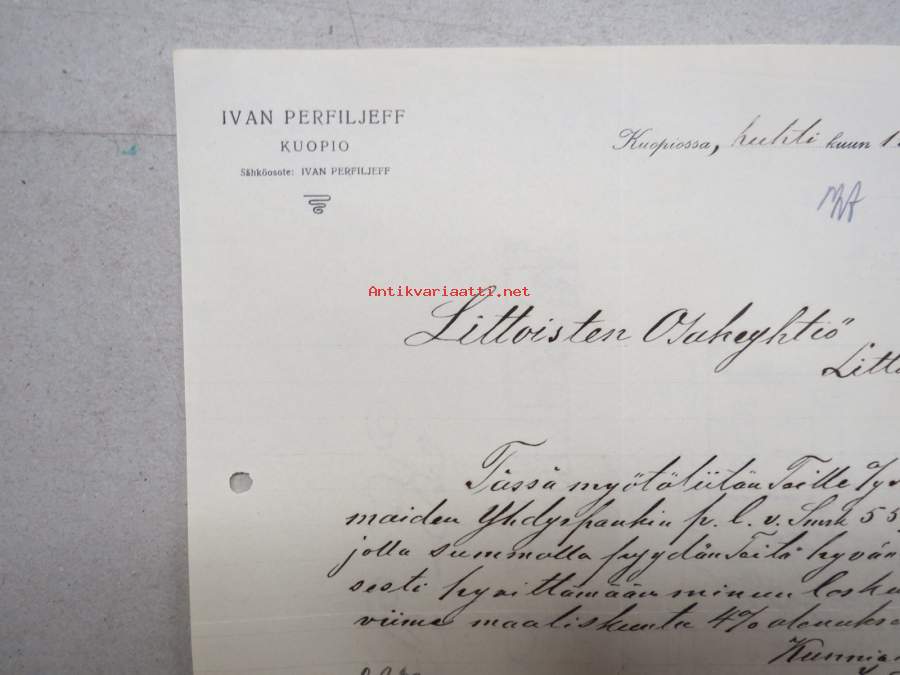 IVAN PERFILJEFF
KUOPIO
Sähköosote: IVAN PERFILJEFF
Kuopiossa, huhti kuun 1
Antikvariaatti.net
Littoisten Osakeyhtiö
Litt
Tässä myötäliitän Teille
maiden Yhdyspankin p. l. v. Smk 55
jolla summalla pyydän Teitä hyvän
sesti hyvittämään minun lasku
viime maaliskuuta 4% alennuks
Kunnia